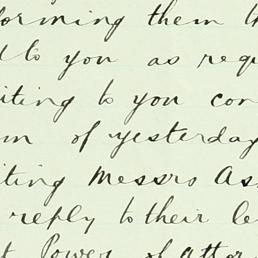 orming them
d to you as requ
iting to you con
um of yesterday
iting Messrs As
reply to their le
t Power of attor